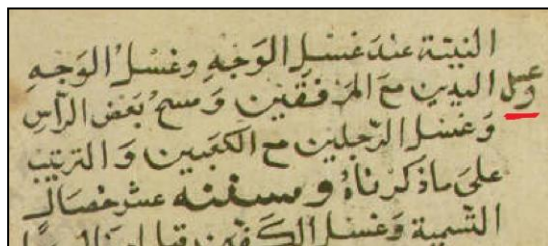 النية عند غسل الوجه وغسل الوجه
وغسل اليدين مع المرفقين ومسح بعض الرأس
وغسل الرجلين مع الكعبين والترتيب
على ما ذكرناه وسننه عشر خصال
التسمية وغسل الكفين قبل